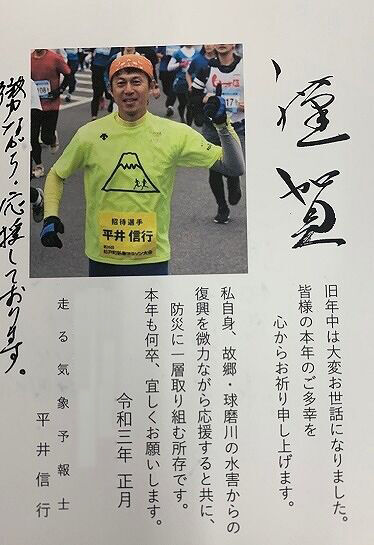 謹賀
旧年中は大変お世話になりました。
皆様の本年のご多幸を
心からお祈り申し上げます。
私自身、故郷・球磨川の水害からの
復興を微力ながら応援すると共に、
防災に一層取り組む所存です。
本年も何卒、宜しくお願いします。
令和三年 正月
走る気象予報士
平井信行
微力ながら・応援しております。
招待選手
平井 信行